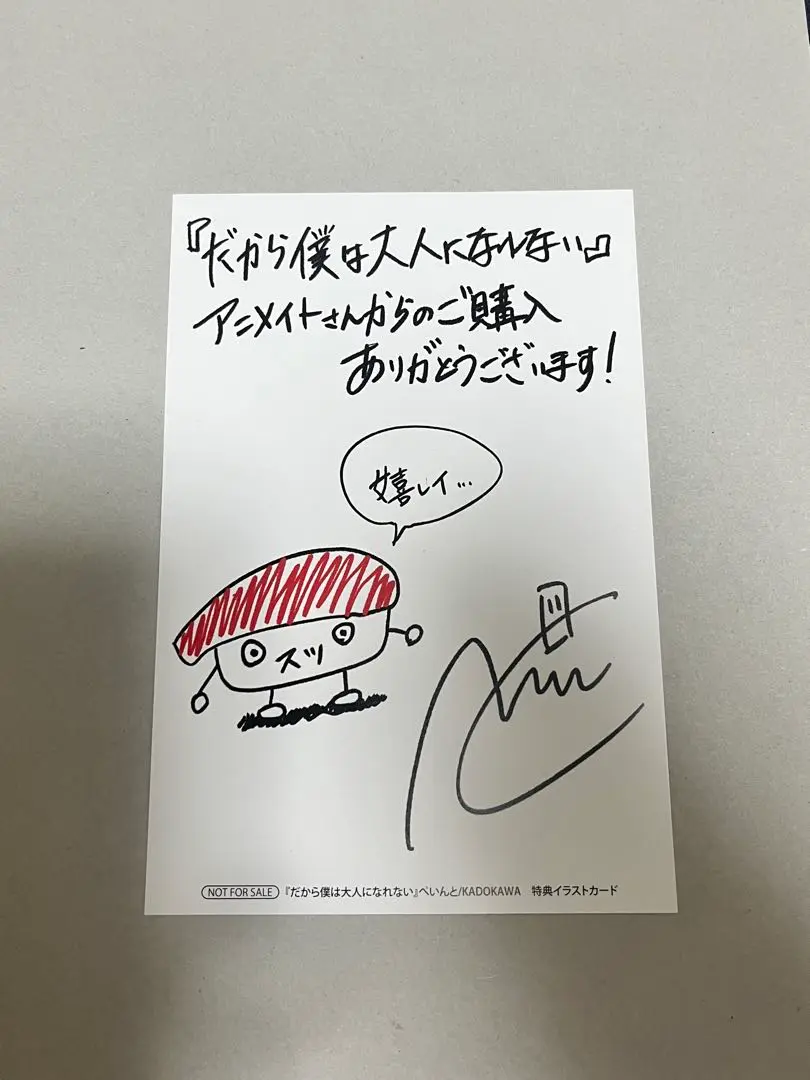 『だから僕は大人になれない』
アニメイトさんからのご購入
ありがとうございます！
嬉レイ…
スツ
NOT FOR SALE 『だから僕は大人になれない』ぺいんと/KADOKAWA 特典イラストカード